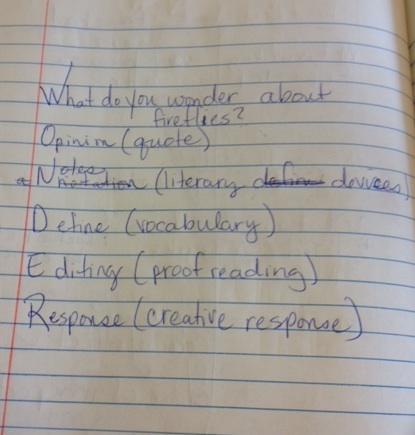 What do you wonder about
fireflies?
Opinion (quote)
Notes
notation (literary define devices)
Define (vocabulary)
Editing (proofreading)
Response (creative response)